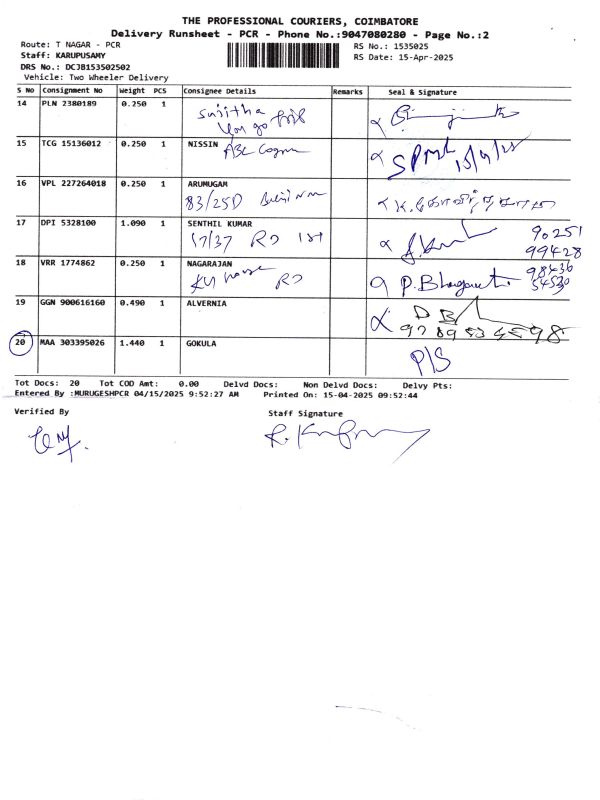 THE PROFESSIONAL COURIERS, COIMBATORE
Delivery Runsheet - PCR - Phone No.:9047080280 - Page No.:2
Route: T NAGAR - PCR
RS No.: 1535025
Staff: KARUPUSAMY
RS Date: 15-Apr-2025
DRS No.: DCJB153502502
Vehicle: Two Wheeler Delivery
S No Consignment No Weight PCS Consignee Details Remarks Seal & Signature
14 PLN 2380189 0.250 1
Sujitha
15 TCG 15136012 0.250 1 NISSIN
ABC
15/4/25
16 VPL 227264018 0.250 1 ARUMUGAM
83/25D
17 DPI 5328100 1.090 1 SENTHIL KUMAR
17/37 RD 1st
90251
99428
18 VRR 1774862 0.250 1 NAGARAJAN
house RD
P. Bhagavat
98436
54530
19 GGN 900616160 0.490 1 ALVERNIA
DB
9789534598
20 MAA 303395026 1.440 1 GOKULA
P/S
Tot Docs: 20 Tot COD Amt: 0.00 Delvd Docs: Non Delvd Docs: Delvy Pts:
Entered By :MURUGESHPCR 04/15/2025 9:52:27 AM Printed On: 15-04-2025 09:52:44
Verified By
Staff Signature